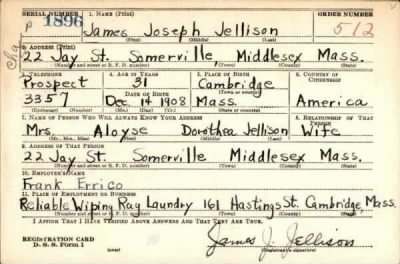 SERIAL NUMBER 1. NAME (Print) ORDER NUMBER
1896 James Joseph Jellison 512
(First) (Middle) (Last)
2. ADDRESS (Print)
22 Jay St. Somerville Middlesex Mass.
(Number and street or R. F. D. number) (Town) (County) (State)
3. TELEPHONE 4. AGE IN YEARS 5. PLACE OF BIRTH 6. COUNTRY OF CITIZENSHIP
Prospect 31 Cambridge
DATE OF BIRTH (Town or county)
3357 Dec. 14 1908 Mass. America
(Exchange) (Number) (Mo.) (Day) (Yr.) (State or country)
7. NAME OF PERSON WHO WILL ALWAYS KNOW YOUR ADDRESS 8. RELATIONSHIP OF THAT PERSON
Mrs. Aloyse Dorothea Jellison Wife
(Mr., Mrs., Miss) (First) (Middle) (Last)
9. ADDRESS OF THAT PERSON
22 Jay St. Somerville Middlesex Mass.
(Number and street or R. F. D. number) (Town) (County) (State)
10. EMPLOYER'S NAME
Frank Errico
11. PLACE OF EMPLOYMENT OR BUSINESS
Reliable Wiping Rag Laundry 161 Hastings St. Cambridge, Mass.
(Number and street or R. F. D. number) (Town) (County) (State)
I AFFIRM THAT I HAVE VERIFIED ABOVE ANSWERS AND THAT THEY ARE TRUE.
REGISTRATION CARD
D. S. S. Form 1
James J. Jellison
(Registrant's signature)